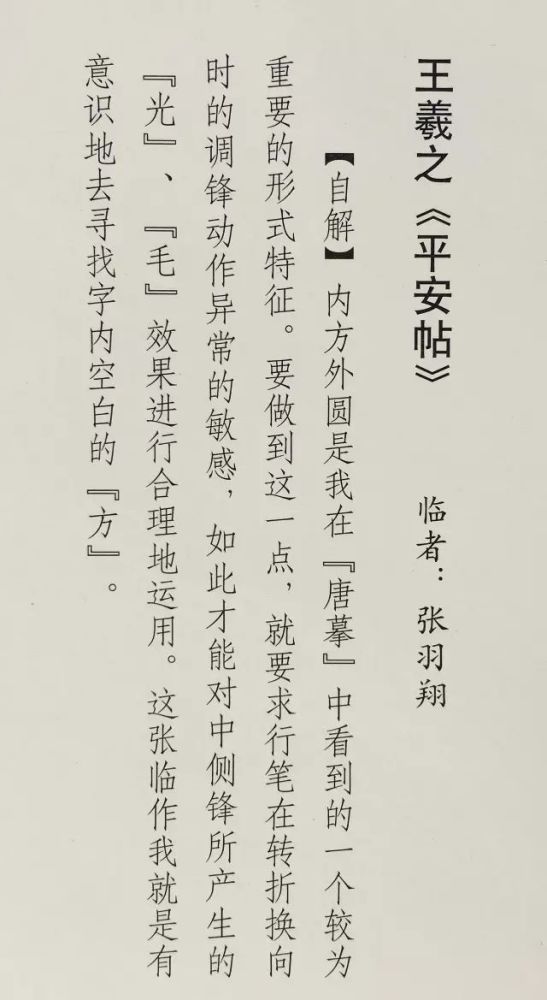 王羲之《平安帖》 临者：张羽翔
【自解】内方外圆是我在『唐摹』中看到的一个较为
重要的形式特征。要做到这一点，就要求行笔在转折换向
时的调锋动作异常的敏感，如此才能对中侧锋所产生的
『光』、『毛』效果进行合理地运用。这张临作我就是有
意识地去寻找字内空白的『方』。